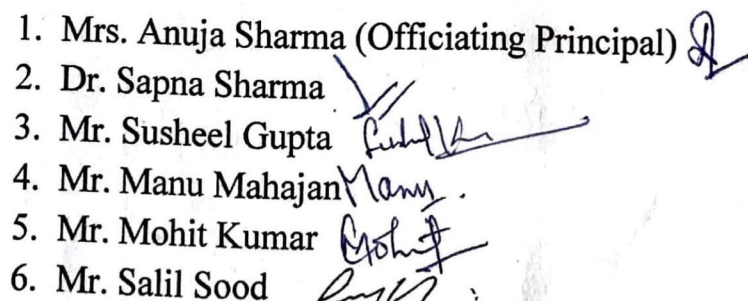 1. Mrs. Anuja Sharma (Officiating Principal)
2. Dr. Sapna Sharma
3. Mr. Susheel Gupta
4. Mr. Manu Mahajan Manu.
5. Mr. Mohit Kumar Mohit
6. Mr. Salil Sood